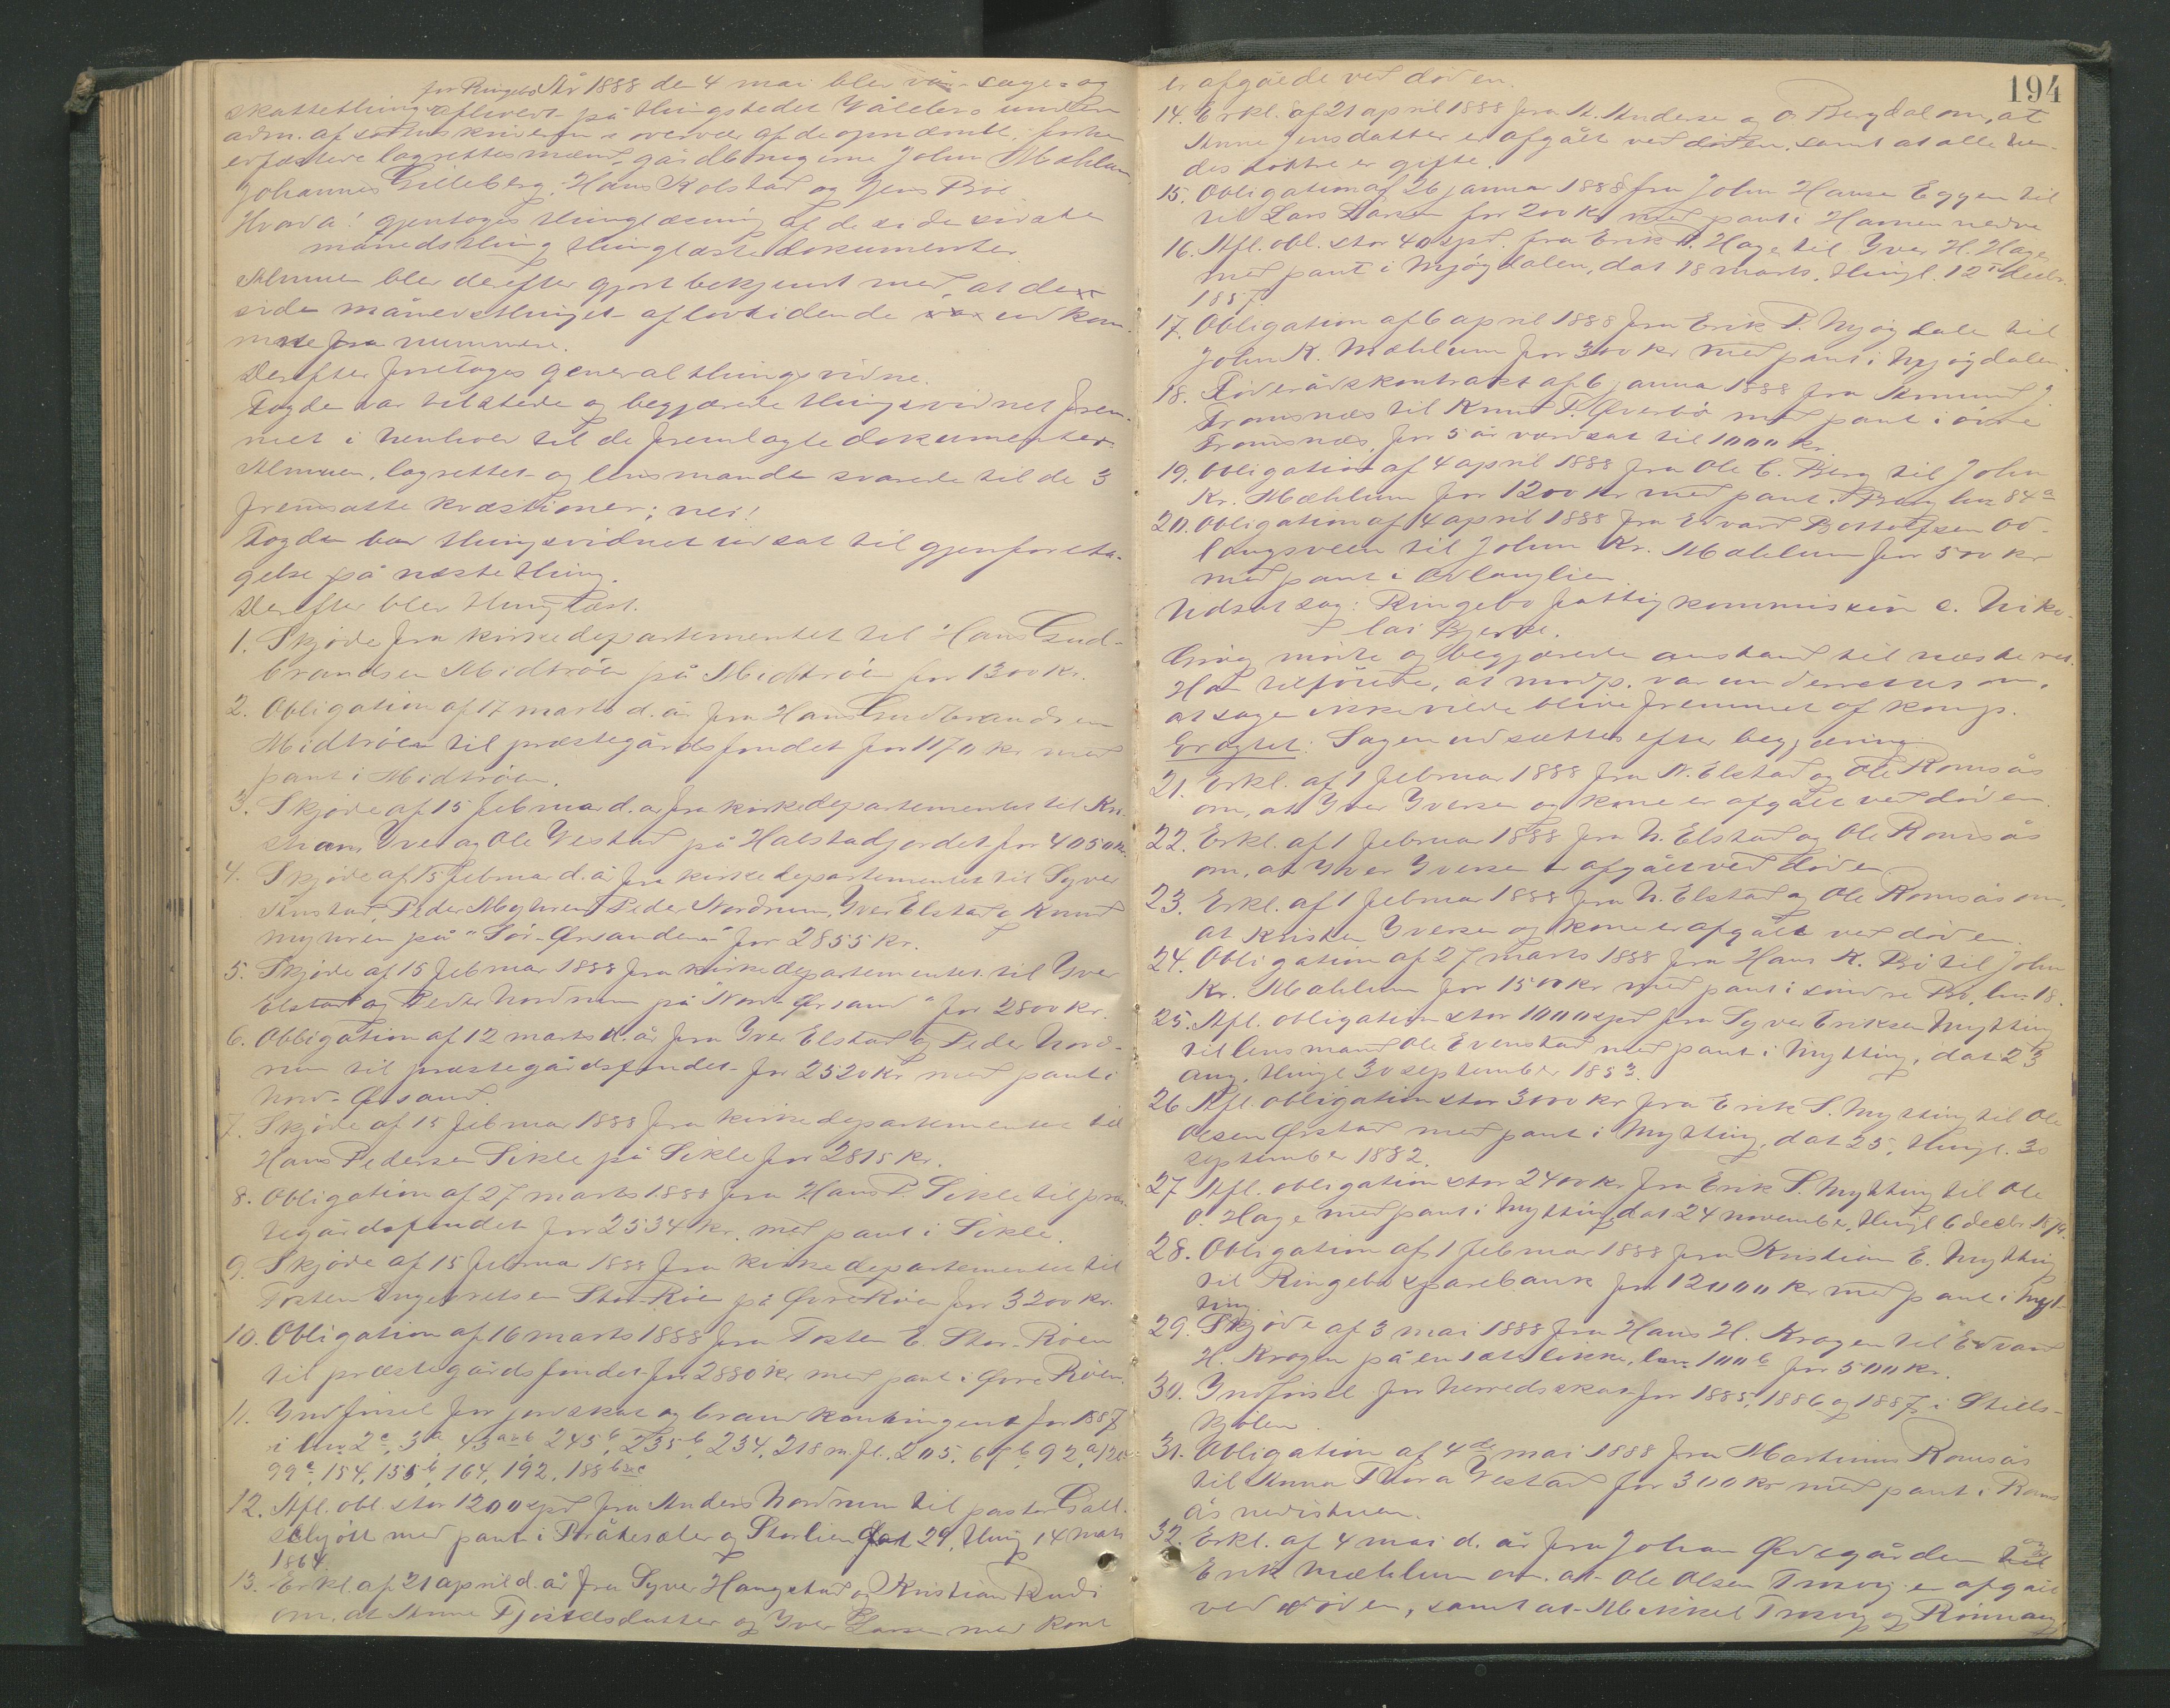 for Ringebo År 1888 den 4 mai blev vår- sage- og
skattething afholdt på thingstedet Våleberg under
adm. af sorenskriveren i overvær af de opnævnte, forhen
edfæstede lagrettesmænd, gårdbrugerne John Mæhlum
Johannes Gilleberg, Hans Kolstad og Jens Bøe
Hvorda! gjentoges thinglæsning af de siden sidste
månedsthing thinglæste dokumenter
Almuen blev derefter gjort bekjent med, at de
siden månedsthinget aflovtidende udkom-
mne numere.
Derefter foretoges generalthingsvidne.
Fogden var tilstede og begjærede thingsvidnet frem-
met i henhold til de fremlagte dokumenter.
Almuen, lagrettet og lensmanden svarede til de 3
fremsatte kvæstioner; nei!
Fogden bad thingsvidnet udsat til gjenforeta-
gelse på næste thing.
Derefter blev thinglæst.
1. Skjøde fra kirkedepartementet til Hans Gud-
brandsen Midtrøen på Midtrøen for 1300 kr.
2. Obligation af 17 marts d. år fra Hans Gudbrandsen
Midtrøen til præstegårdsfondet for 1170 kr med
pant i Midtrøen.
3. Skjøde af 15 februar d. år fra kirkedepartementet til Kri-
stian, Iver og Ole Vestad på Halstadjordet for 4050 kr.
4. Skjøde af 15 februar d. år fra kirkedepartementet til Syver
Anstad, Peder Myhren, Peder Nordrum, Iver Elstad og Knud
Myhren på "Sør-Ørsanden" for 2855 kr.
5. Skjøde af 15 februar 1888 fra kirkedepartementet til Yver
Elstad og Peder Nordrum på "Nord-Ørsand" for 2800 kr.
6. Obligation af 12 marts d. år fra Iver Elstad og Peder Nord-
rum til præstegårdsfondet for 2520 kr med pant i
Nord-Ørsand.
7. Skjøde af 15 februar 1888 fra kirkedepartementet til
Hans Pedersen Sikle på Sikle for 2815 kr.
8. Obligation af 27 marts 1888 fra Hans P. Sikle til præs-
tegårdsfondet for 2534 kr. med pant i Sikle.
9. Skjøde af 15 februar 1888 fra kirkedepartementet til
Tosten Engebretsen Stor-Røen på Øvre Røen for 3200 kr.
10. Obligation af 16 marts 1888 fra Tosten E. Stor-Røen
til præstegårdsfondet for 2880 kr med pant i Øvre Røen.
11. Indførsel for jordskat og brandkontingent for 1887
i lnr 2 c, 3 a, 43 a&b, 245 b, 235 b, 234, 218 m.fl., 205, 67 b, 92 a, 120
99 c, 154, 155 b, 164, 192, 188 b&c
12. Afl. obl. stor 1200 spd fra Anders Nordrum til pastor Gall-
schjøtt med pant i Bråtesæter og Storlien dat 29, thingl 14 marts
1864.
13. Erkl. af 21 april d. år fra Syver Haugstad og Kristian Rudi
om, at Anne Fjostelsdatter og Yver Larsen med kone
194
er afgåede ved døden.
14. Erkl. af 21 april 1888 fra A. Anderse og O Bergdal om, at
Anne Jensdatter er afgået ved døden, samt at alle hen-
des døttre er gifte.
15. Obligation af 26 januar 1888 fra John Hansen Eggen til
til Lars Larsen for 200 kr med pant i Hamen nedre
16. Afl. obl. stor 40 spd. fra Erik P. Hage til Yver H. Hage
med pant i Myøgdalen, dat 18 marts, thingl. 12te decbr.
1857.
17. Obligation af 6 april 1888 fra Erik P. Myøgdalen til
John K. Mæhlum for 300 kr med pant i Myøgdalen.
18. Føderådskontrakt af 6 januar 1888 fra Amund J.
Tromsnæs til Knud P. Øverbø med pant i øvre
Tromsnæs, for 5 år værdsat til 1000 kr.
19. Obligation af 4 april 1888 fra Ole C. Berg til John
Kr. Mæhlum for 1200 kr med pant i Berg lnr 84 a
20. Obligation af 4 april 1888 fra Edvard Bottolfsen Od-
langsveen til John Kr. Mæhlum for 500 kr
med pant i Odlanglien.
Udsat sag: Ringebo fattigkommission c. Niko-
lai Bjerke.
mødte og begjærede anstand til næste ret.
Han tilførte, at modp. var underrettet om,
at sagen ikke vilde blive fremmet af komp.
Eragtet: Sagen udsættes efter begjæring
21. Erkl. af 1 februar 1888 fra N. Elstad og Ole Romsås
om, at Yver Yversen og kone er afgået ved døden.
22. Erkl. af 1 februar 1888 fra N. Elstad og Ole Romsås
om, at Yver Yversen er afgået ved døden
23. Erkl. af 1 februar 1888 fra N. Elstad og Ole Romsås om,
at Kristen Yversen og kone er afgået ved døden.
24. Obligation af 27 marts 1888 fra Hans K. Bø til John
Kr. Mæhlum for 1500 kr med pant i søndre Bø, lnr 18.
25. Afl. obligation stor 1000 spd fra Syver Eriksen Mytting
til lensmand Ole Evenstad med pant i Mytting, dat 23
aug, thingl 30 september 1853.
26 Afl. obligation stor 3000 kr fra Erik S. Mytting til Ole
Olsen Ørstad med pant i Mytting, dat 25, thingl. 30
september 1882.
27 Afl. obligation stor 2400 kr fra Erik S. Mytting til Ole
O. Hage med pant i Mytting dat 24 november, thingl 6 decbr 1879.
28. Obligation af 1 februar 1888 fra Kristian E. Mytting
til Ringebo sparebank for 12000 kr med pant i Myt-
ting.
29. Skjøde af 3 mai 1888 fra Hans H. Krogen til Edvard
H. Krogen på en løkke, lnr 100 b for 500 kr.
30. Indførsel for herredsskat for 1885, 1886 og 1887 i Stills-
kjølen
31. Obligation af 4de mai 1888 fra Martinus Romsås
til Anna Thora Vestad for 300 kr med pant i Roms-
ås nedistuen.
32. Erkl. af 4 mai d. år fra Johan Ødegården og
Erik Mæhlum om, at Ole Olsen Trosvig er afgået
ved døden, samt at Mikkel Trosvig og Rønnaug